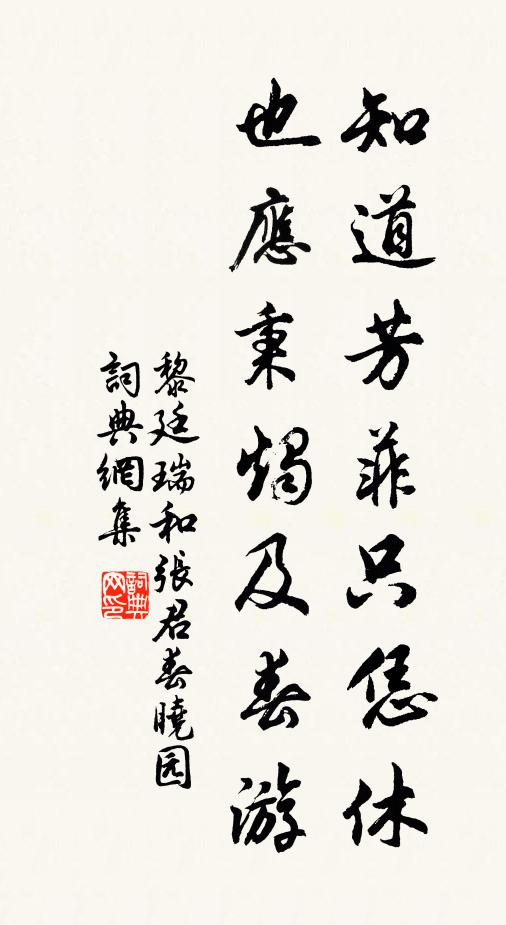 知道芳菲只恁休
也應秉燭及春游
黎廷瑞和張君春曉园
詞典網集
詞典网印